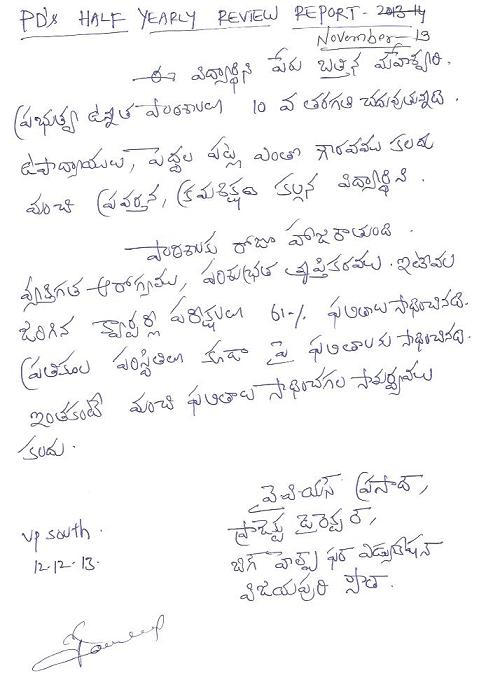 PD's HALF YEARLY REVIEW REPORT - 2013-14
November - 13
ఈ విద్యార్థిని పేరు బత్తిన మహేశ్వరి.
ప్రభుత్వ ఉన్నత పాఠశాలలో 10 వ తరగతి చదువుతున్నది.
ఉపాధ్యాయులు, పెద్దల పట్ల ఎంతో గౌరవము కలదు
మంచి ప్రవర్తన, క్రమశిక్షణ కల్గిన విద్యార్థిని.
పాఠశాలకు రోజూ హాజరౌతుంది.
వ్యక్తిగత ఆరోగ్యము, పరిశుభ్రత తృప్తికరమము. ఇటీవల
జరిగిన క్వార్టర్లీ పరీక్షలలో 61% ఫలితాలు సాధించినది.
ప్రతికూల పరిస్థితిలో కూడా పై ఫలితాలను సాధించినది.
ఇంతకంటే మంచి ఫలితాలు సాధించగల సామర్థ్యము
కలదు.
వై.వి.యస్ ప్రసాద్,
ప్రాజెక్టు డైరెక్టర్,
బిగ్ హెల్ప్ ఫర్ ఎడ్యుకేషన్
విజయపురి సౌత్.
VP South.
12-12-13.